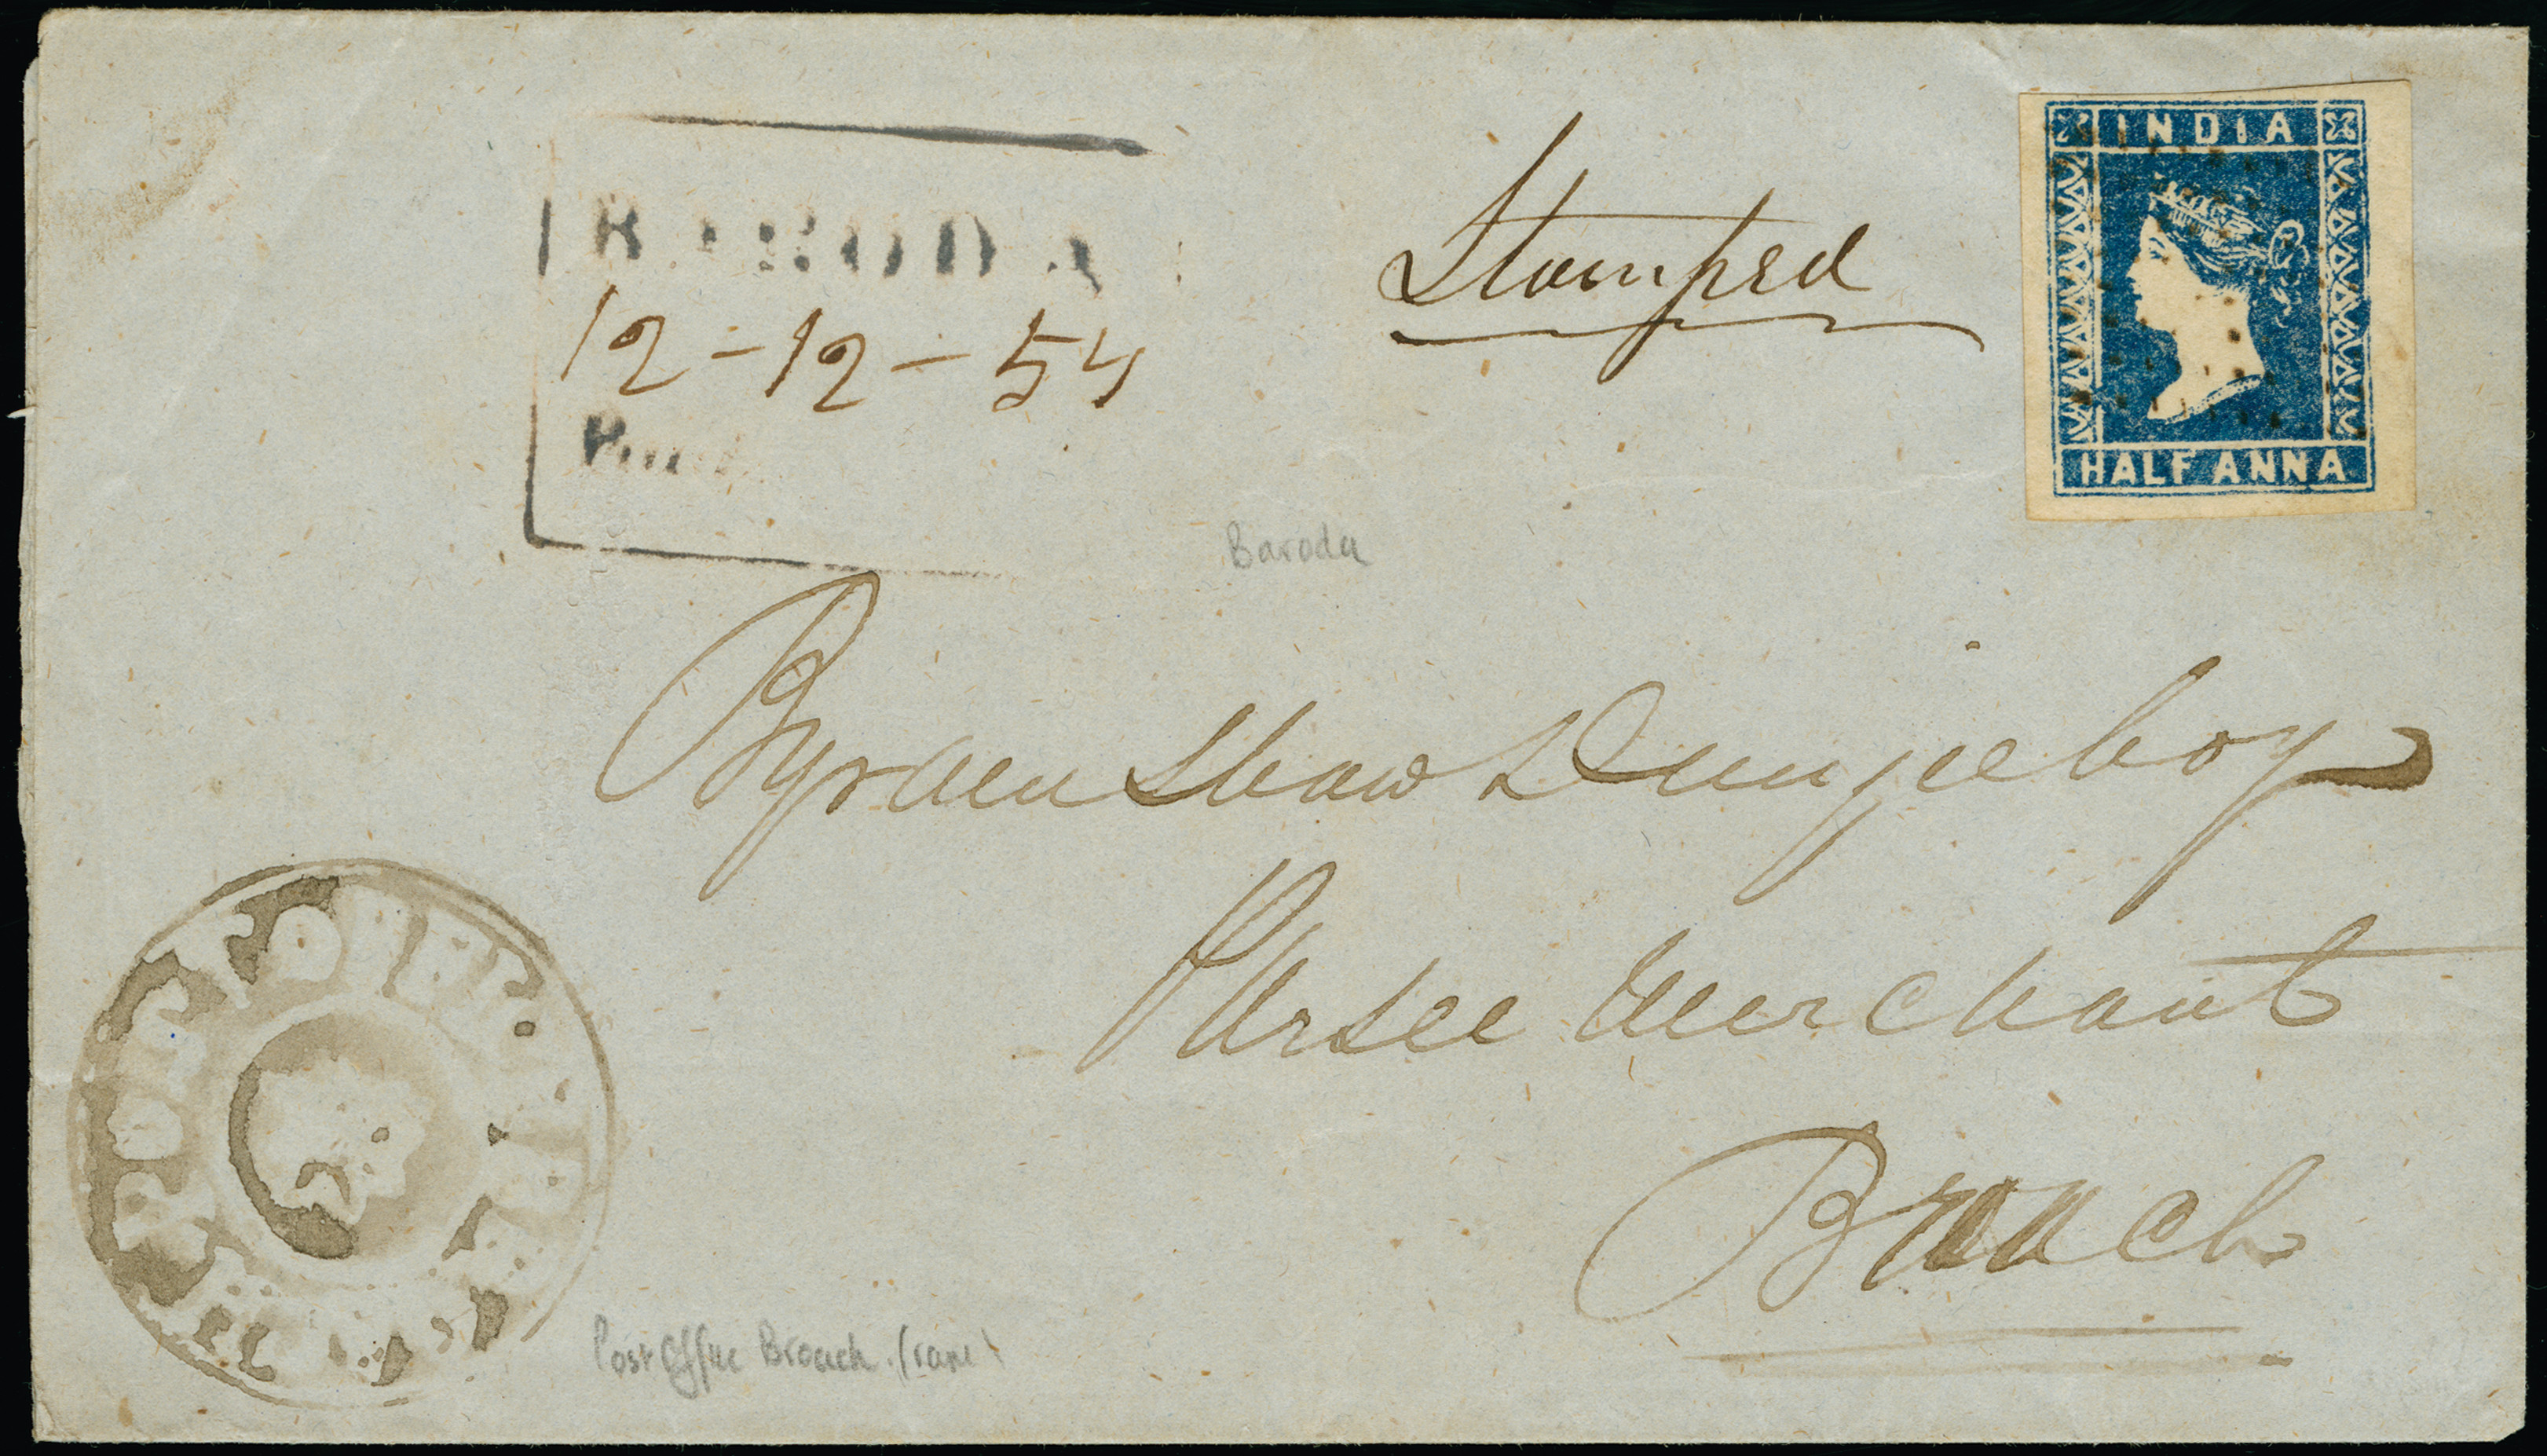 INDIA
BARODA
Stamped
12-12-54
Paid
HALF ANNA
Baroda
Byramshaw Dunjeeboy
Parsee Merchant
Broach
POST OFFICE
Post Office Broach (rare)